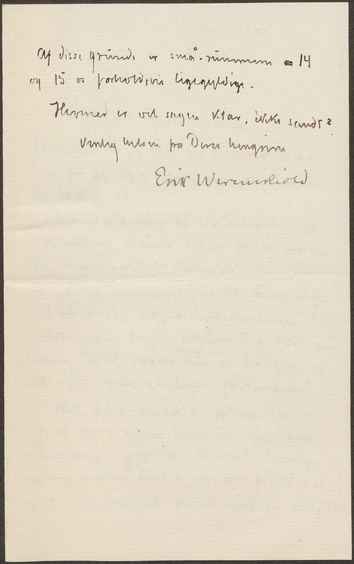 Af disse grunde er små-rummene 14
og 15 os forholdsvis ligegyldige.
Hermed er vel sagen klar, ikke sandt?
Venlig hilsen fra Deres hengivne
Erik Werenskiold